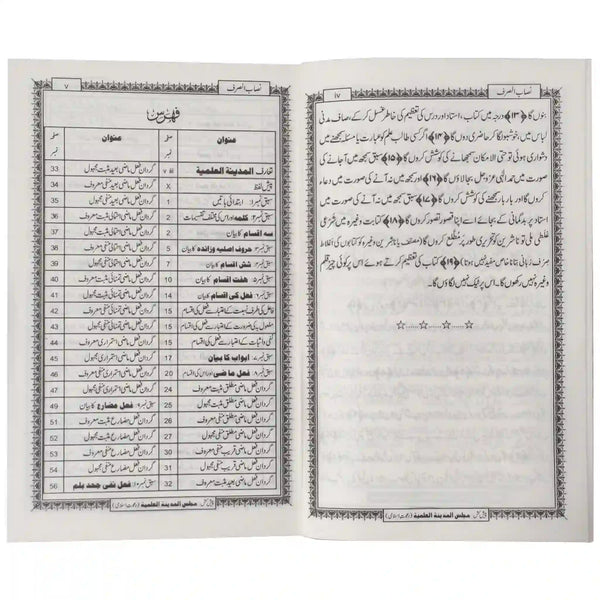 نصاب الصرف iv
بنوں گا ﴿۱۳﴾ درجہ میں کتاب، استاد اور درس کی تعظیم کی خاطر غسل کر کے، صاف مدنی
لباس میں، خوشبو لگا کر حاضری دوں گا ﴿۱۴﴾ اگر کسی طالب علم کو عبارت یا مسئلہ سمجھنے میں
دشواری ہوئی تو حتی الامکان سمجھانے کی کوشش کروں گا ﴿۱۵﴾ سبق سمجھ میں آجانے کی
صورت میں حمد الٰہی عزوجل بجا لاؤں گا ﴿۱۶﴾ اور سمجھ میں نہ آنے کی صورت میں دعاء
کروں گا اور بار بار سمجھنے کی کوشش کروں گا ﴿۱۷﴾ سبق سمجھ میں نہ آنے کی صورت میں
استاد پر بدگمانی کے بجائے اسے اپنا قصور تصور کروں گا ﴿۱۸﴾ کتابت وغیرہ میں شرعی
غلطی ملی تو ناشرین کو تحریری طور پر مطلع کروں گا (مصنف یا ناشرین وغیرہ کو کتابوں کی اغلاط
صرف زبانی بتانا خاص مفید نہیں ہوتا) ﴿۱۹﴾ کتاب کی تعظیم کرتے ہوئے اس پر کوئی چیز قلم
وغیرہ نہیں رکھوں گا۔ اس پر ٹیک نہیں لگاؤں گا۔
☆.....☆.....☆.....☆
پیش کش: مجلس المدینة العلمیة (دعوت اسلامی)
نصاب الصرف v
فہرس
عنوان صفحہ نمبر عنوان صفحہ نمبر
تعارف المدینة العلمیة v iii گردان فعل ماضی بعید مثبت مجہول 33
پیش لفظ X گردان فعل ماضی بعید منفی معروف 34
سبق نمبر ۱: ابتدائی باتیں 1 گردان فعل ماضی بعید منفی مجہول 35
سبق نمبر ۲: کلمہ اور اس کی مختلف تقسیمات 2 گردان فعل ماضی احتمالی مثبت معروف 36
سہ اقسام 3 گردان فعل ماضی احتمالی مثبت مجہول 37
سبق نمبر ۳: حروف اصلیہ وزائدہ کا بیان 5 گردان فعل ماضی احتمالی منفی معروف 38
سبق نمبر ۴: شش اقسام کا بیان 7 گردان فعل ماضی احتمالی منفی مجہول 39
سبق نمبر ۵: ھفت اقسام کا بیان 10 گردان فعل ماضی تمنائی مثبت معروف 40
سبق نمبر ۶: فعل کی اقسام 14 گردان فعل ماضی تمنائی مثبت مجہول 41
فاعل کی طرف نسبت کے اعتبار سے فعل کی اقسام 15 گردان فعل ماضی تمنائی منفی معروف 42
مفعول کی ضرورت کے اعتبار سے فعل کی اقسام 15 گردان فعل ماضی تمنائی منفی مجہول 43
نفی و اثبات کے اعتبار سے فعل کی اقسام 15 گردان فعل ماضی استمراری مثبت معروف 44
سبق نمبر ۷: ابواب کا بیان 17 گردان فعل ماضی استمراری مثبت مجہول 45
سبق نمبر ۸: فعل ماضی اور اس کی اقسام 20 گردان فعل ماضی استمراری منفی معروف 46
گردان فعل ماضی مطلق مثبت مجہول 25 سبق نمبر ۹: فعل مضارع کا بیان 49
گردان فعل ماضی مطلق منفی معروف 26 گردان فعل مضارع مثبت معروف 50
گردان فعل ماضی مطلق منفی مجہول 27 گردان فعل مضارع مثبت مجہول 51
گردان فعل ماضی قریب مثبت معروف 28 گردان فعل مضارع منفی معروف 53
گردان فعل ماضی قریب منفی مجہول 31 گردان فعل مضارع منفی مجہول 54
گردان فعل ماضی بعید مثبت معروف 32 سبق نمبر ۱۰: فعل نفی جحد بلم 56
پیش کش: مجلس المدینة العلمیة (دعوت اسلامی)